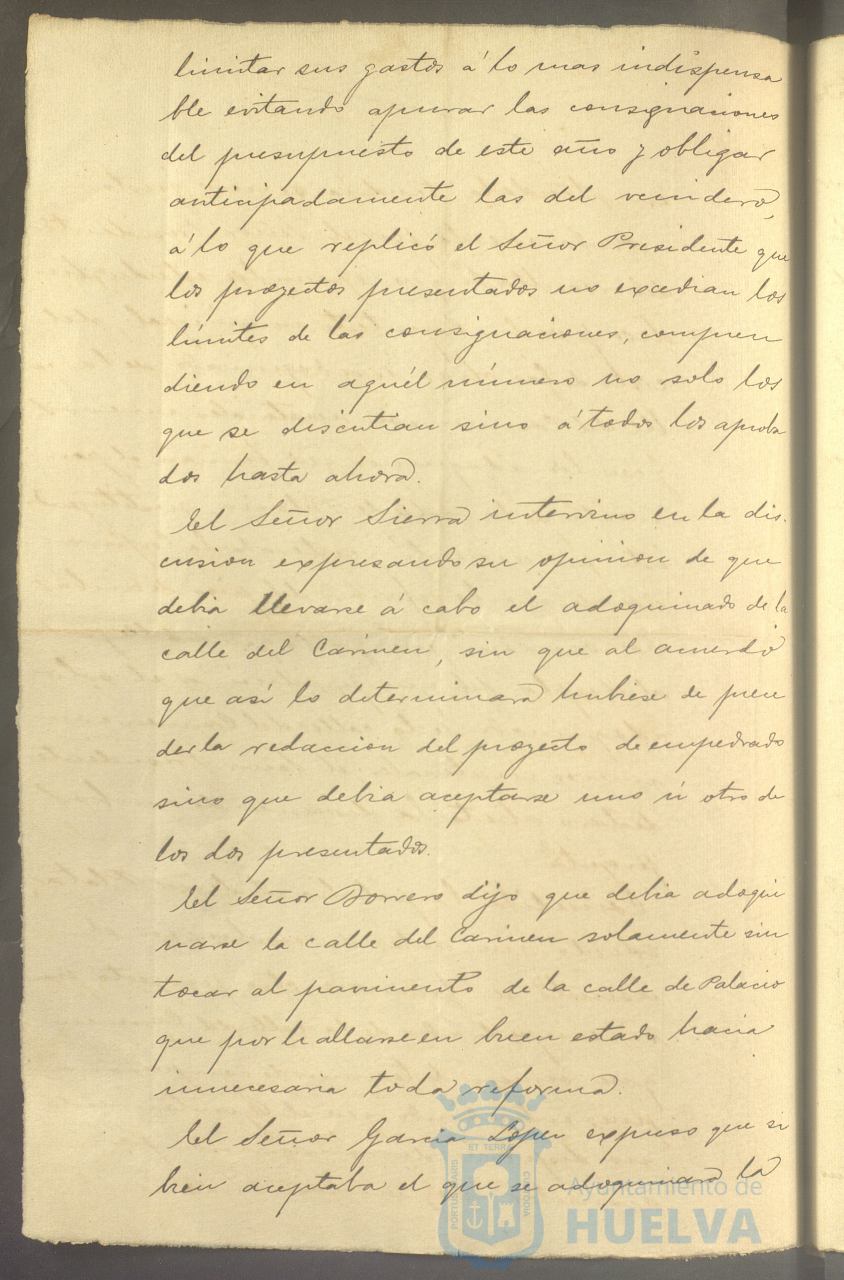 limitar sus gastos á lo mas indispensa
ble evitando apurar las consignaciones
del presupuesto de este año y obligar
anticipadamente las del venidero,
á lo que replicó el Señor Presidente que
los proyectos presentados no excedian los
límites de las consignaciones, compren
diendo en aquél número no solo los
que se discutian sino á todos los aproba
dos hasta ahora.
El Señor Sierra intervino en la dis-
cusion expresando su opinion de que
debia llevarse á cabo el adoquinado de la
calle del Carmen, sin que al acuerdo
que así lo determinara hubiese de prece
der la redaccion del proyecto de empedrado
sino que debia aceptarse uno ú otro de
los dos presentados.
El Señor Borrero dijo que debia adoqui
narse la calle del Carmen solamente sin
tocar al pavimento de la calle de Palacio
que por hallarse en buen estado hacia
innecesaria toda reforma.
El Señor Garcia Lopez expuso que si
bien aceptaba el que se adoquinara la
PORTUS MARIS ET TERRÆ CUSTODIA
Ayuntamiento de
HUELVA